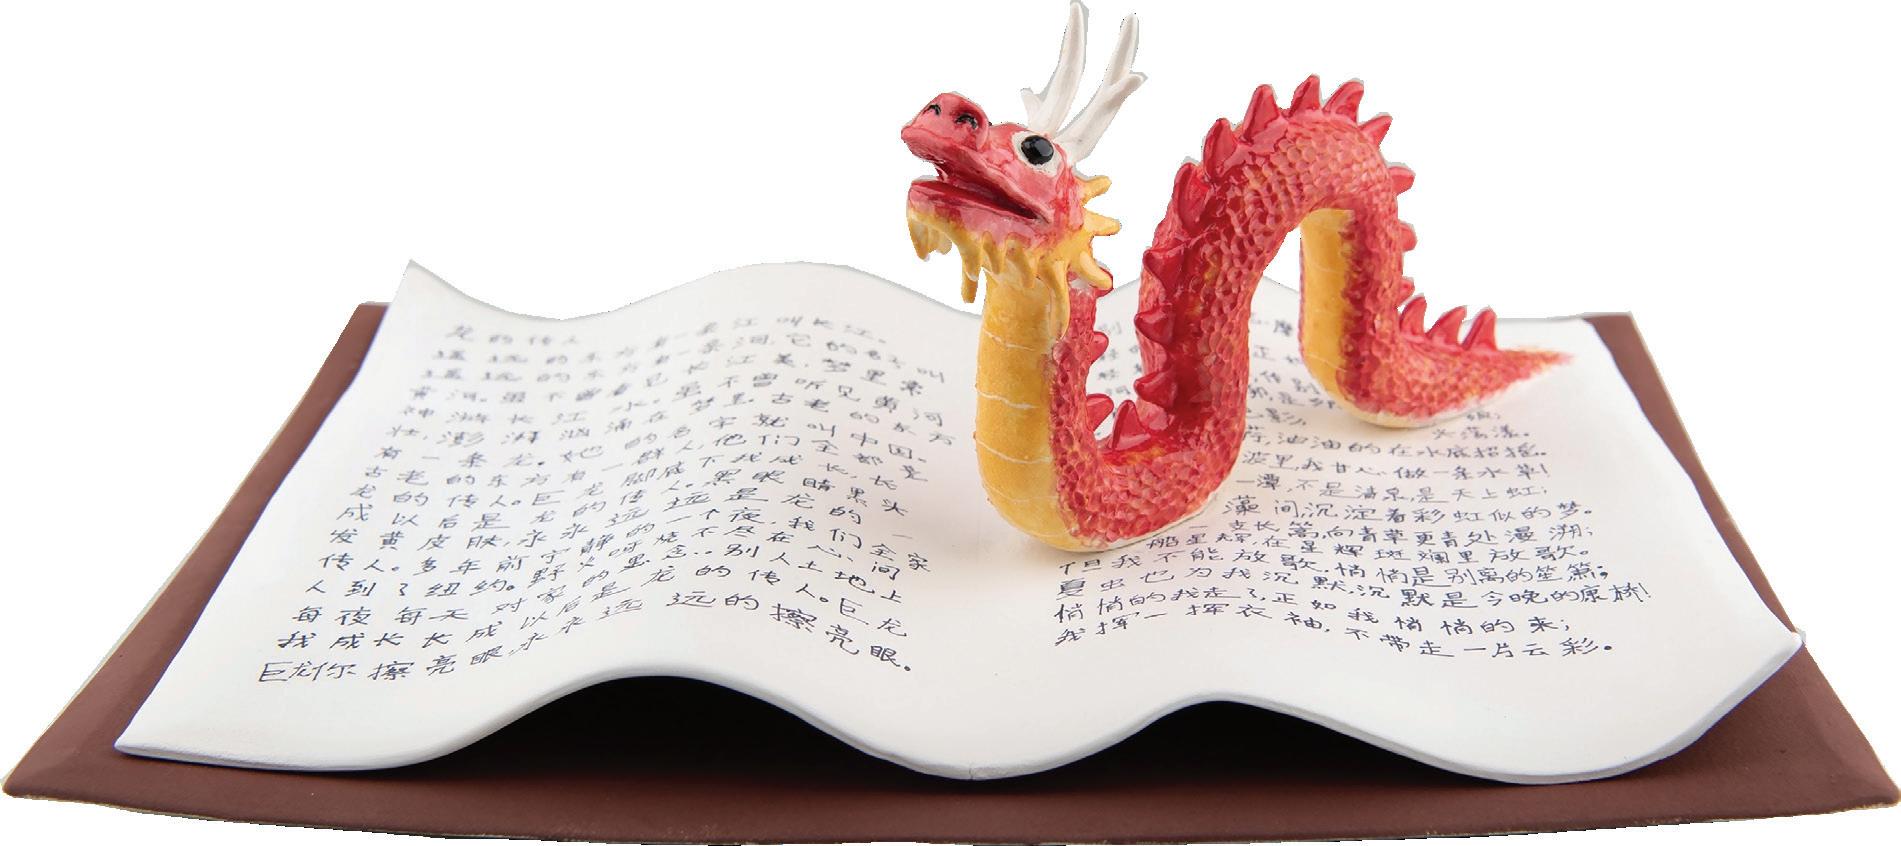 龙的传人
遥远的东方有一条江叫长江。
遥远的东方有一条河,它的名字叫
黄河。虽不曾看见长江美,梦里常
神游长江水。虽不曾听见黄河
壮,澎湃汹涌在梦里。古老的东方
有一条龙。她的名字就叫中国。
古老的东方有一群人,他们全都是
龙的传人。巨龙脚底下我成长,长
成以后是龙的传人。黑眼睛黑头
发黄皮肤,永永远远是龙的
传人。多年前宁静的一个夜,我们全家
人到了纽约。野火呼烧不尽在心间
每夜每天对家的思念..别人土地上
我成长长成以后是龙的传人。巨龙
巨龙你擦亮眼,永永远远的擦亮眼。
别
影,
头荡漾。
荇,油油的在水底招摇。
波里,我甘心做一条水草!
一潭,不是清泉,是天上虹;
藻间,沉淀着彩虹似的梦。
一支长篙,向青草更青处漫溯;
船星辉,在星辉斑斓里放歌。
但我不能放歌,悄悄是别离的笙箫;
夏虫也为我沉默,沉默是今晚的康桥!
悄悄的我走了,正如我悄悄的来;
我挥一挥衣袖,不带走一片云彩。